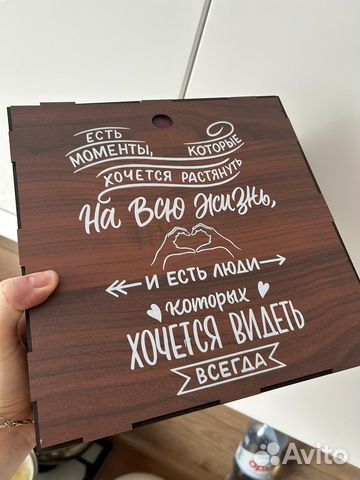 ЕСТЬ
МОМЕНТЫ, КОТОРЫЕ
ХОЧЕТСЯ РАСТЯНУТЬ
На всю жизнь,
И ЕСТЬ ЛЮДИ
которых
ХОЧЕТСЯ ВИДЕТЬ
ВСЕГДА
Avito